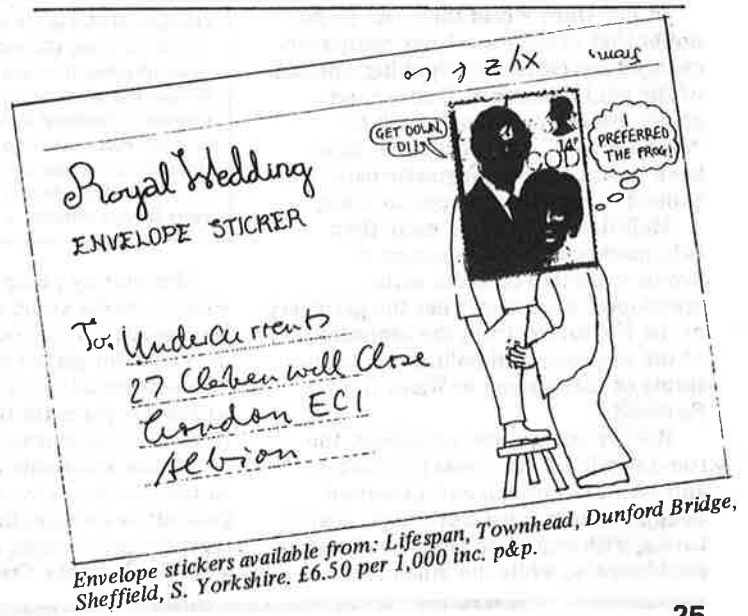 xyz
GET DOWN,
DI!
14P
PREFERRED
THE FROG!
Royal Wedding
ENVELOPE STICKER
To: Undercurrents
27 Clerkenwell Close
London EC1
Albion
Envelope stickers available from: Lifespan, Townhead, Dunford Bridge,
Sheffield, S. Yorkshire. £6.50 per 1,000 inc. p&p.
25